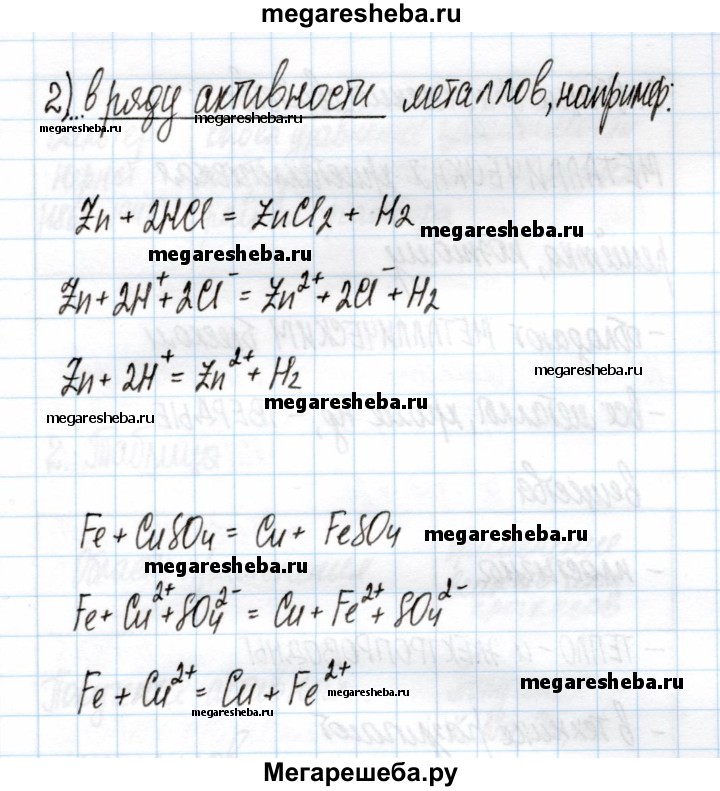 megaresheba.ru
2)... в ряду активности металлов, например:
megaresheba.ru megaresheba.ru
Zn + 2HCl = ZnCl₂ + H₂ megaresheba.ru
megaresheba.ru
Zn + 2H⁺ + 2Cl⁻ = Zn²⁺ + 2Cl⁻ + H₂
Zn + 2H⁺ = Zn²⁺ + H₂ megaresheba.ru
megaresheba.ru
megaresheba.ru
Fe + CuSO₄ = Cu + FeSO₄ megaresheba.ru
megaresheba.ru
Fe + Cu²⁺ + SO₄²⁻ = Cu + Fe²⁺ + SO₄²⁻
Fe + Cu²⁺ = Cu + Fe²⁺ megaresheba.ru megaresheba.ru
megaresheba.ru
Мегарешеба.ру